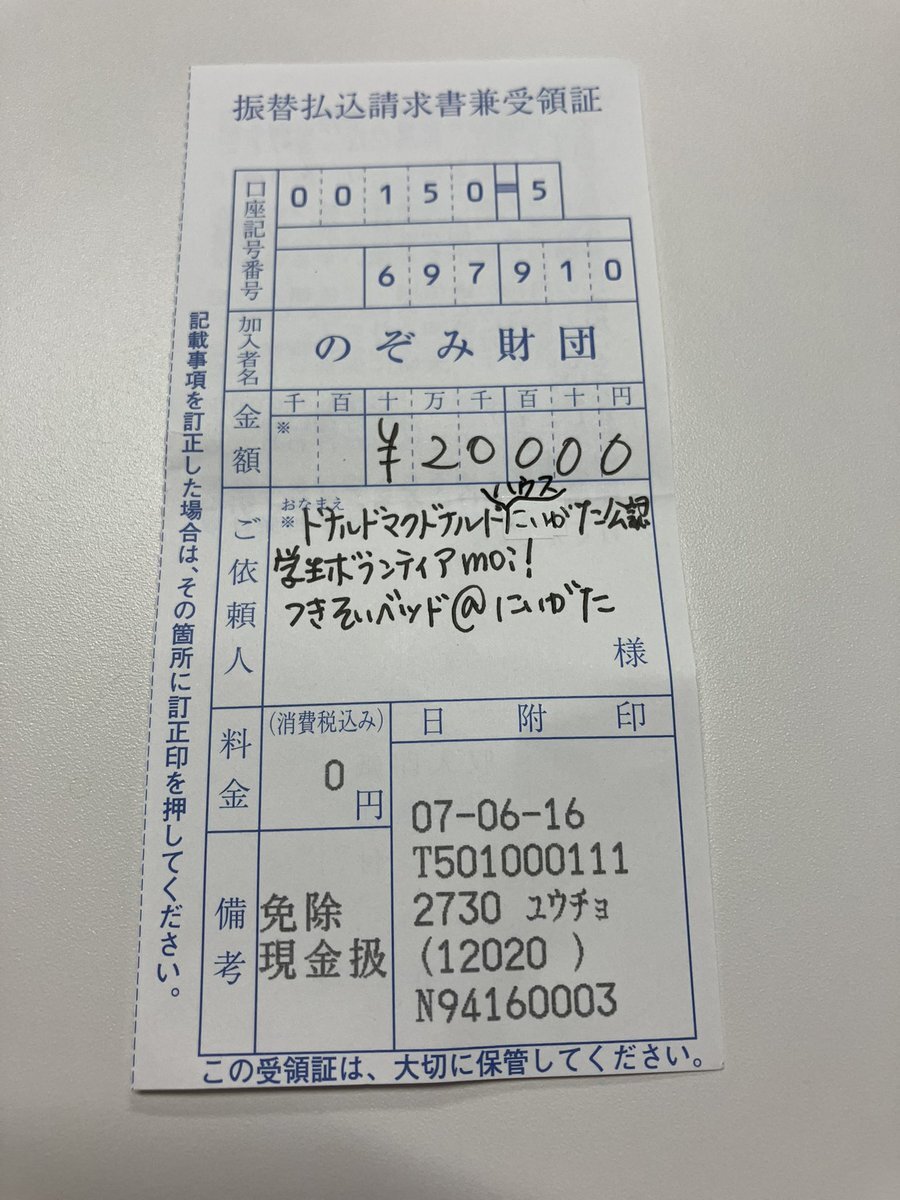 振替払込請求書兼受領証
口座記号番号
00150-5
697910
加入者名
のぞみ財団
金額
千 百 十 万 千 百 十 円
※
¥20000
ご依頼人
おなまえ
ハウス
※ドナルドマクドナルドにいがた公認
学生ボランティアmoi!
つきそいベッド@にいがた
様
料金
(消費税込み)
0
円
日附印
07-06-16
T501000111
2730 ユウチョ
(12020 )
N94160003
備考
免除
現金扱
記載事項を訂正した場合は、その箇所に訂正印を押してください。
この受領証は、大切に保管してください。